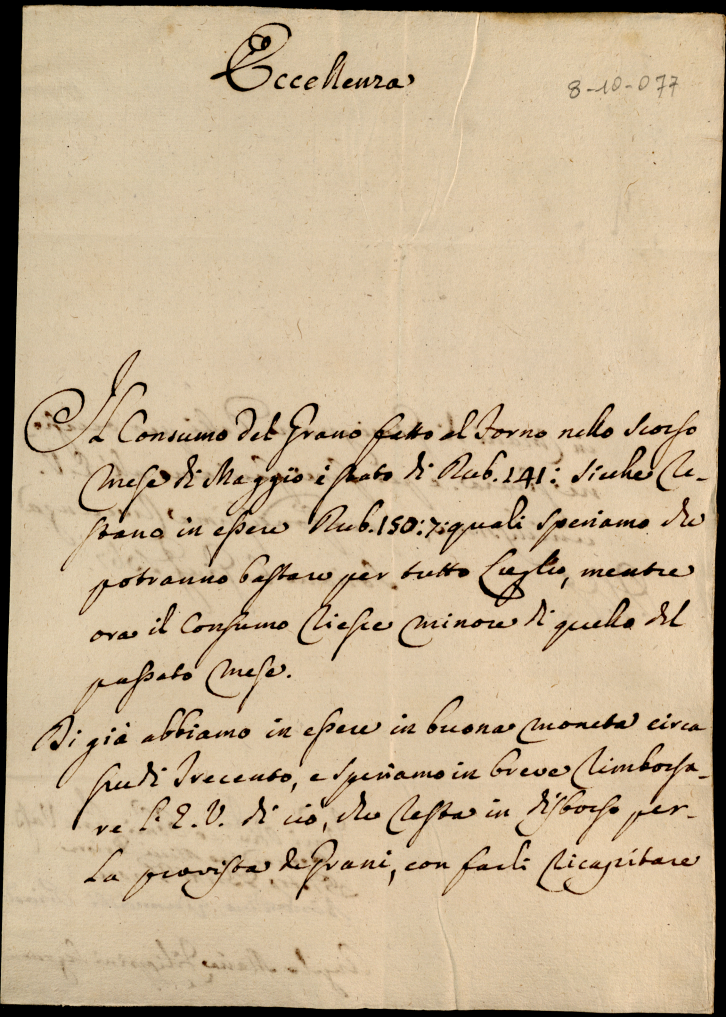 Eccellenza
8-10-077
Il Consumo del Grano fatto al Forno nello scorso
Mese di Maggio è stato di Rub. 141: sicche re-
stano in essere Rub. 150:7: quali speriamo che
potranno bastare per tutto Luglio, mentre
ora il Consumo riesce minore di quello del
passato Mese.
Di già abbiamo in essere in buona moneta circa
scudi Trecento, e speriamo in breve rimborsa-
re l'E. V. di ciò, che resta in disborso per-
la provista de Grani, con farli ricapitare